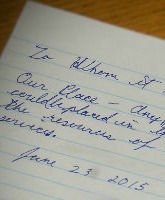 To Whom It
Our Place - Any
could placed in
the resources of
services.
June 23 2015